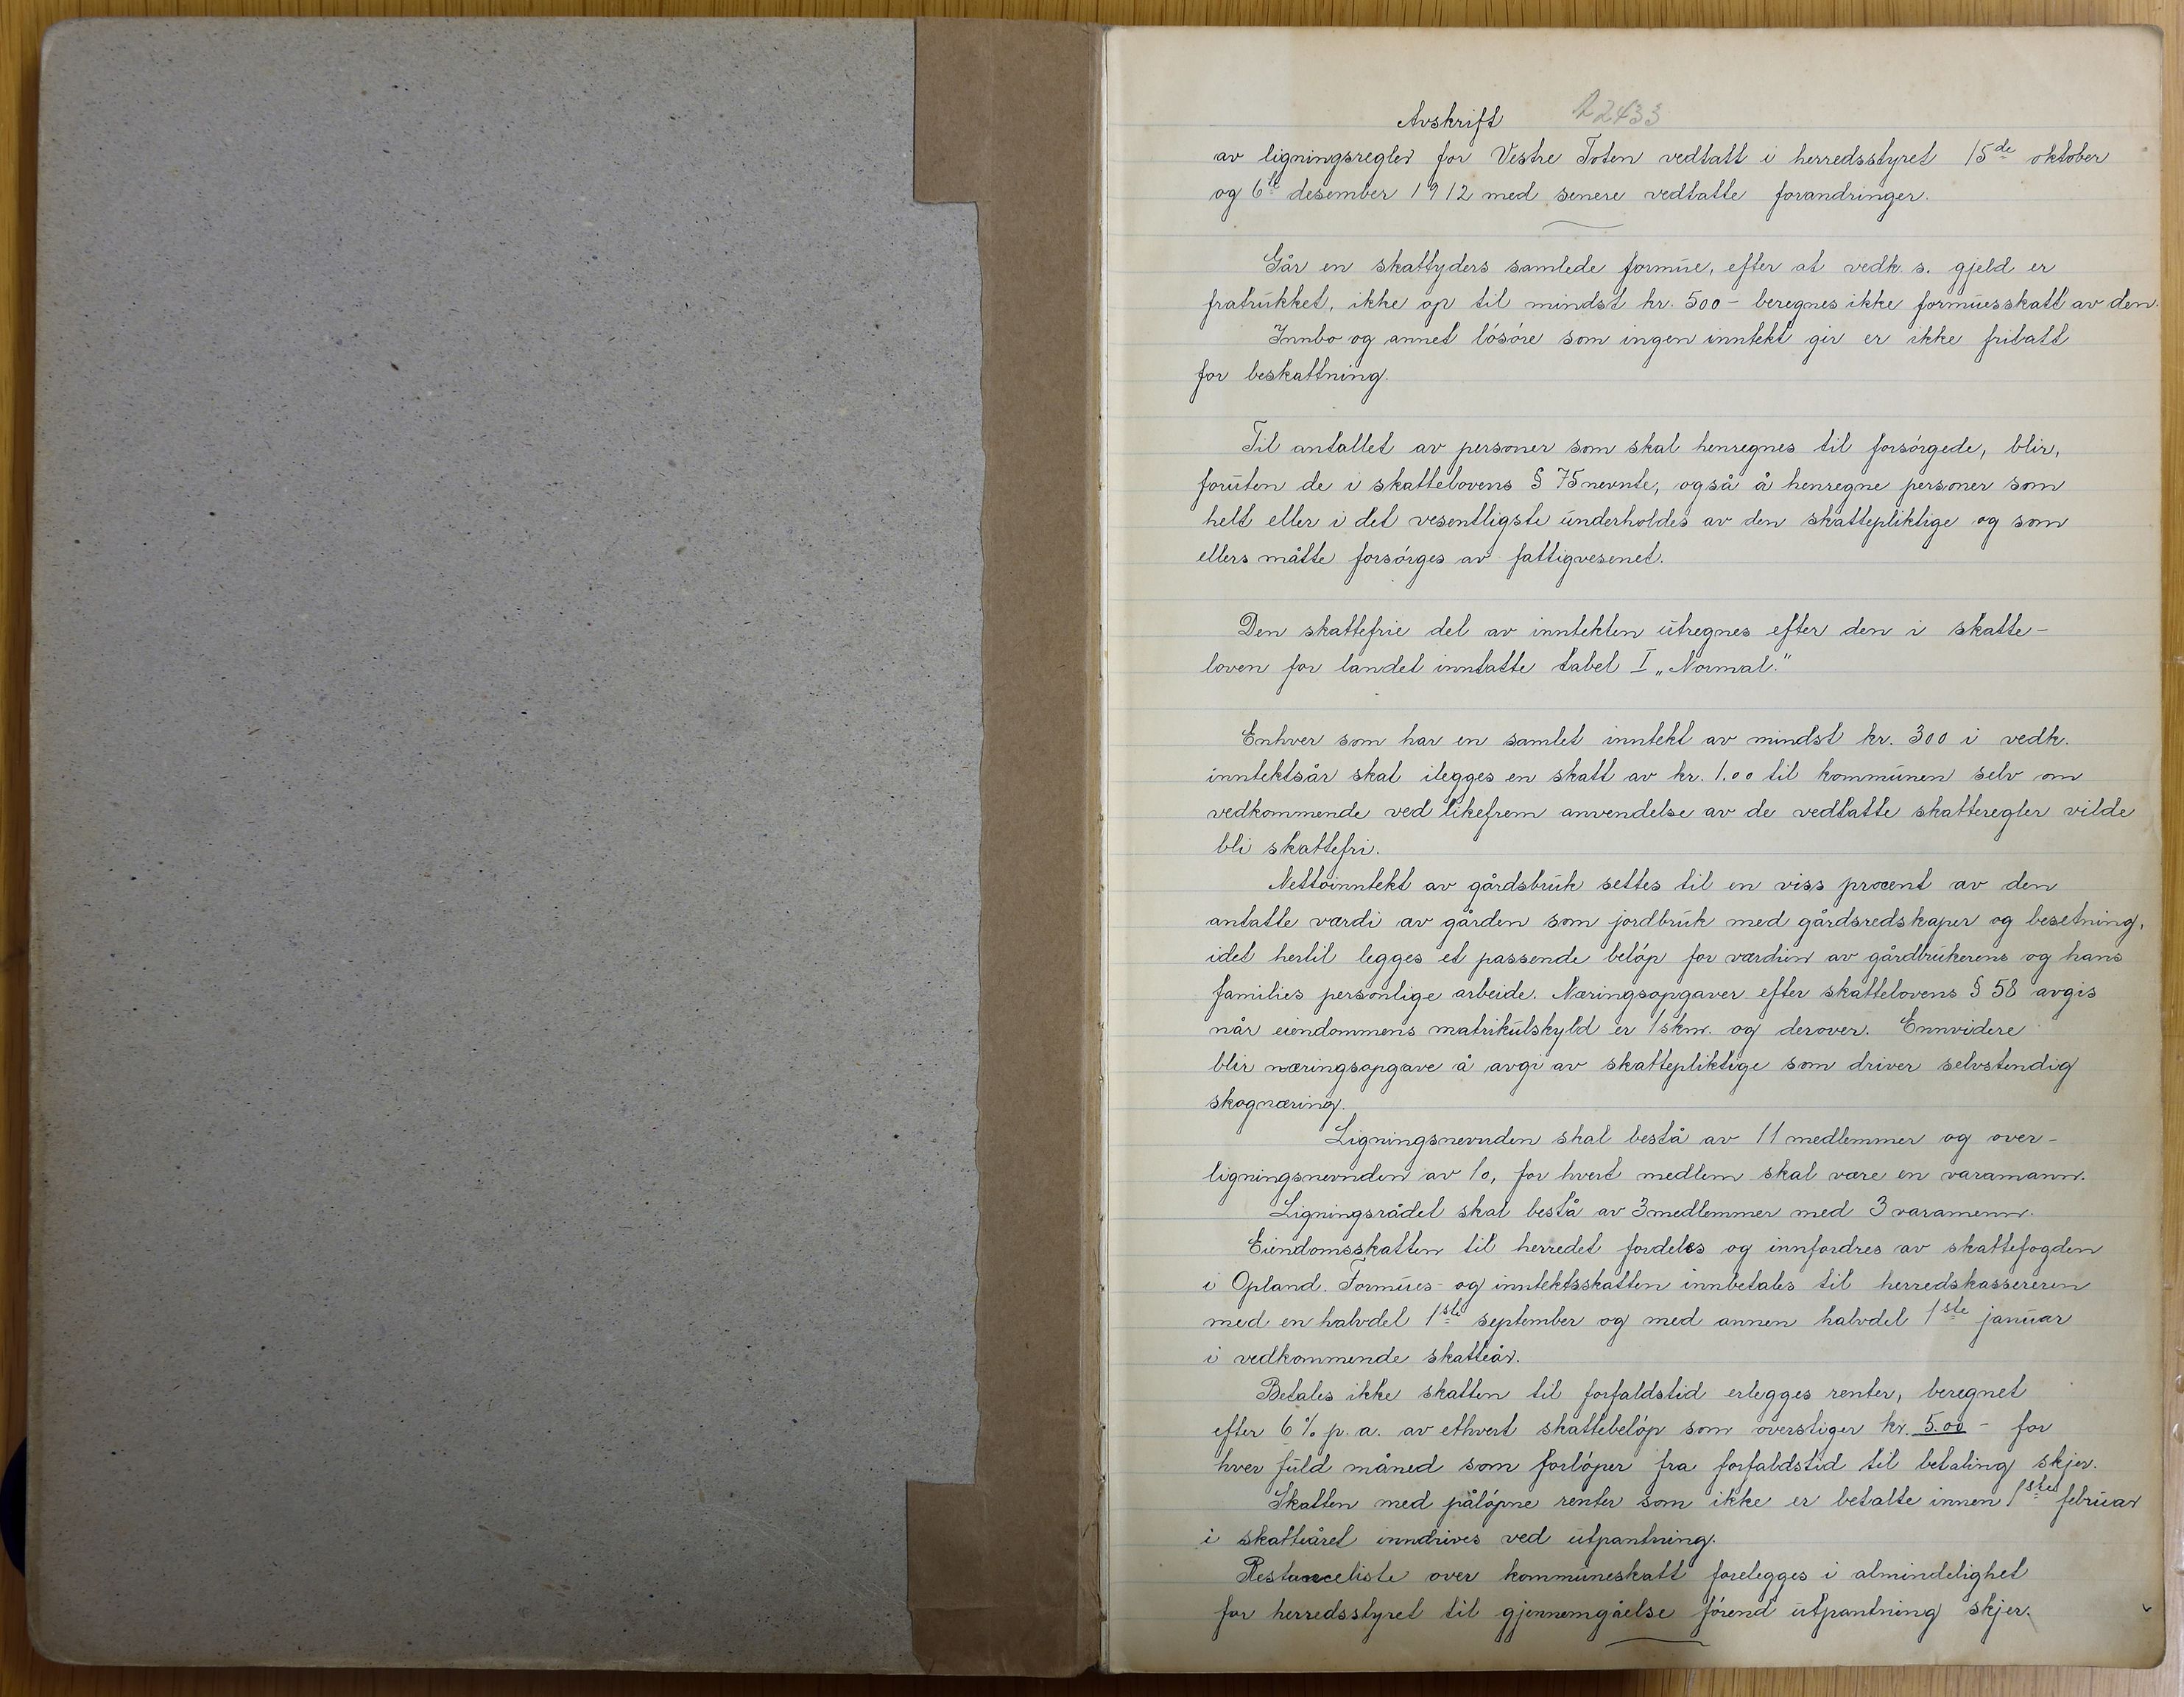 Avskrift
av ligningsregler for Vestre Toten vedtatt i herredsstyret 15de oktober
og 6te desember 1912 med senere vedtatte forandringer.
Går en skattyders samlede formue, efter at vedk. s. gjeld er
fratrukket, ikke op til mindst kr. 500 - beregnes ikke formuesskatt av den.
Innbo og annet løsøre som ingen inntekt gir er ikke fritatt
for beskattning.
Til antallet av personer som skal henregnes til forsørgede, blir,
foruten de i skattelovens § 75 nevnte, også å henregne personer som
helt eller i det vesentligste underholdes av den skattepliktige og som
ellers måtte forsørges av fattigvesenet.
Den skattefrie del av inntekten utregnes efter den i skatte-
loven for landet inntatte tabel I „Normal."
Enhver som har en samlet inntekt av mindst kr. 300 i vedk.
inntektsår skal ilegges en skatt av kr. 1.00 til kommunen selv om
vedkommende ved likefrem anvendelse av de vedtatte skatteregler vilde
bli skattefri.
Nettoinntekt av gårdsbruk settes til en viss procent av den
antatte værdi av gården som jordbruk med gårdsredskaper og besetning,
idet hertil legges et passende beløp for værdien av gårdbrukerens og hans
families personlige arbeide. Næringsopgaver efter skattelovens § 58 avgis
når eiendommens matrikulskyld er 1 skm. og derover. Ennvidere
blir næringsopgave å avgi av skattepliktige som driver selvstendig
skognæring.
Ligningsnevnden skal bestå av 11 medlemmer og over-
ligningsnevnden av 10, for hvert medlem skal være en varamann.
Ligningsrådet skal bestå av 3 medlemmer med 3 varamenn.
Eiendomsskatten til herredet fordeles og innfordres av skattefogden
i Opland. Formues- og inntektsskatten innbetales til herredskassereren
med en halvdel 1ste september og med annen halvdel 1ste januar
i vedkommende skatteår.
Betales ikke skatten til forfaldstid erlegges renter, beregnet
efter 6 % p. a. av ethvert skattebeløp som overstiger kr. 5.00 - for
hver fuld måned som forløper fra forfaldstid til betaling skjer.
Skatten med påløpne renter som ikke er betalte innen 1ste februar
i skatteåret inndrives ved utpantning.
Restanceliste over kommuneskatt forelegges i almindelighet
for herredsstyret til gjennemgåelse førend utpantning skjer.